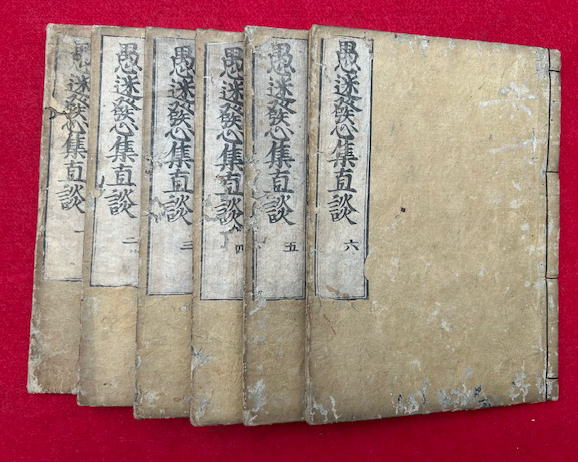 愚迷發心集直談 一
愚迷發心集直談 二
愚迷發心集直談 三
愚迷發心集直談 四
愚迷發心集直談 五
愚迷發心集直談 六